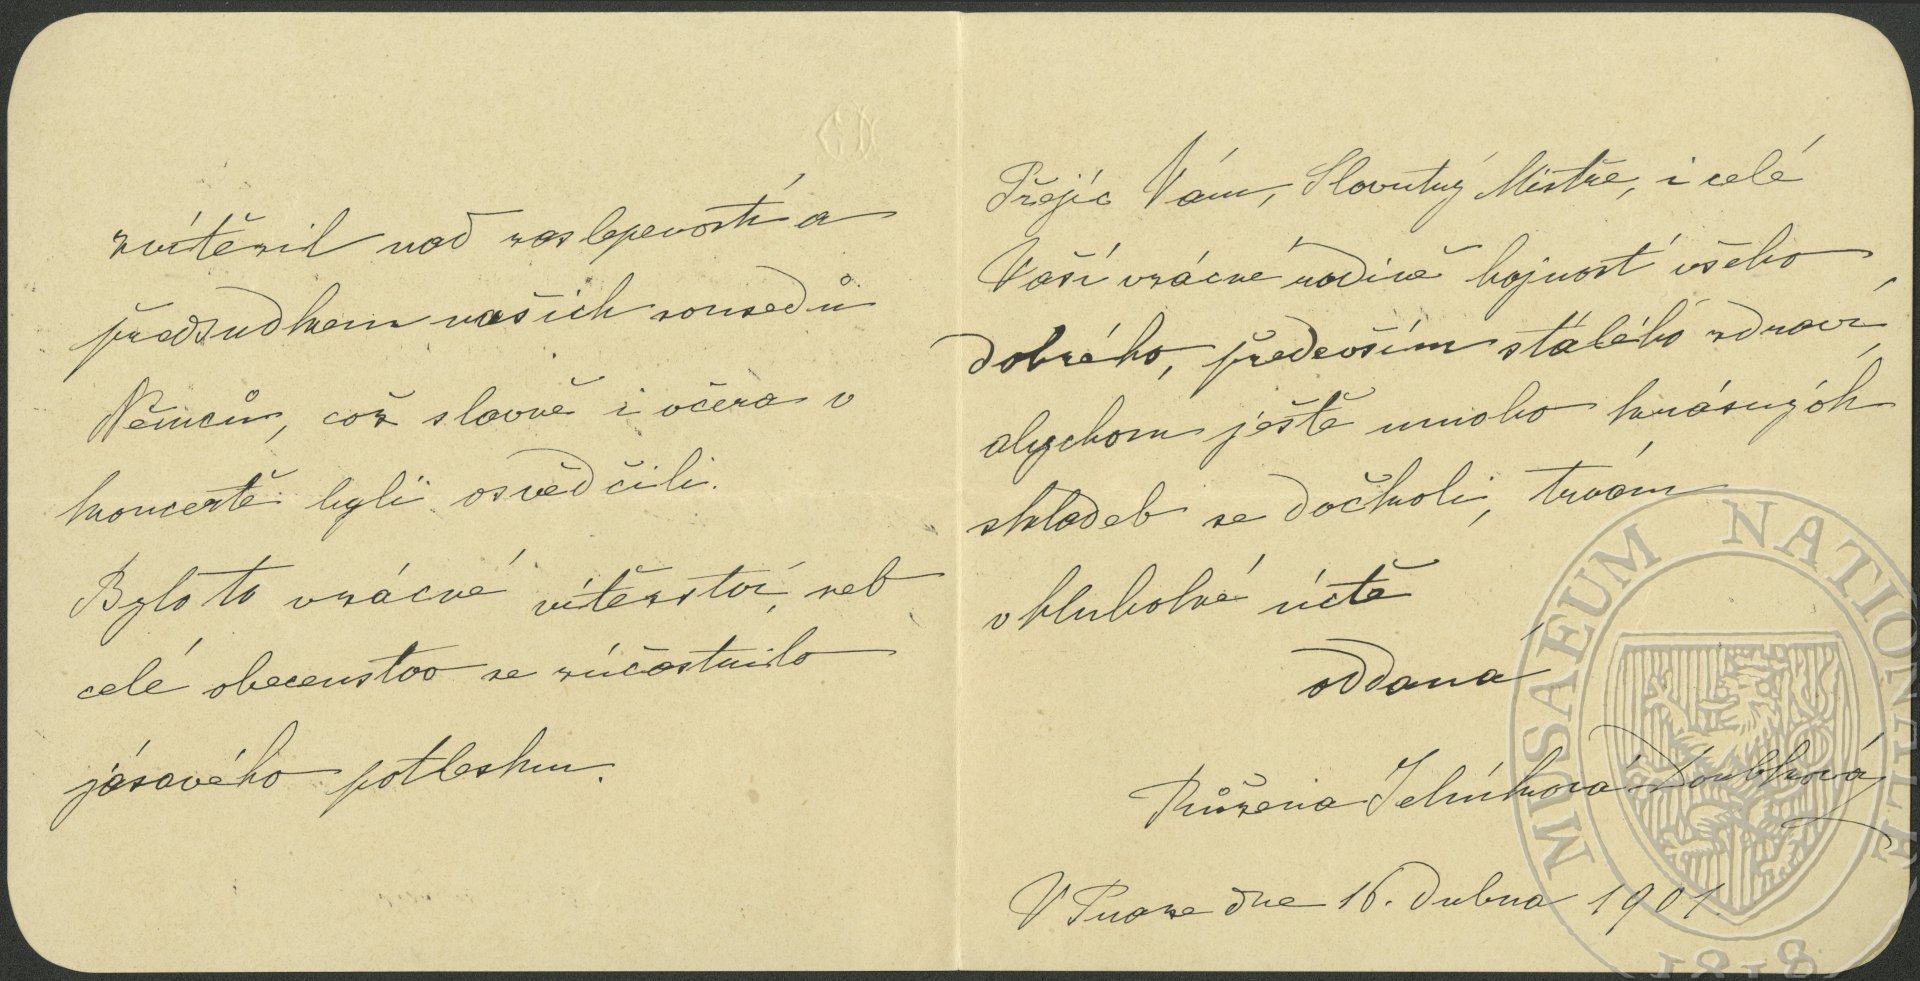 zvítězil nad zaslepeností a
předsudkem našich sousedů
Němců, což slavně i včera v
koncertě byli osvědčili.
Bylo to vzácné vítězství, neb
celé obecenstvo se súčastnilo
jásavého potlesku.
Přejíc Vám, Slovutný Mistře, i celé
Vaší vzácné rodině hojnost všeho
dobrého, především stálého zdraví,
abychom ještě mnoho krásných
skladeb se dočkali, trvám
v hluboké úctě
oddaná
Růžena Jelínková Doubková
V Praze dne 16. dubna 1901.
MUSAEUM NATIONALE
1818